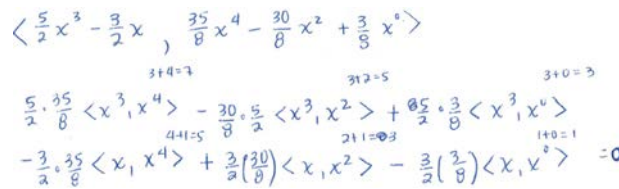 < 5/2 x³ - 3/2 x , 35/8 x⁴ - 30/8 x² + 3/8 x⁰ >
3+4=7 3+2=5 3+0=3
5/2 · 35/8 <x³, x⁴> - 30/8 · 5/2 <x³, x²> + 5/2 · 3/8 <x³, x⁰>
4+1=5 2+1=3 1+0=1
-3/2 · 35/8 <x, x⁴> + 3/2 (30/8) <x, x²> - 3/2 (3/8) <x, x⁰> =0